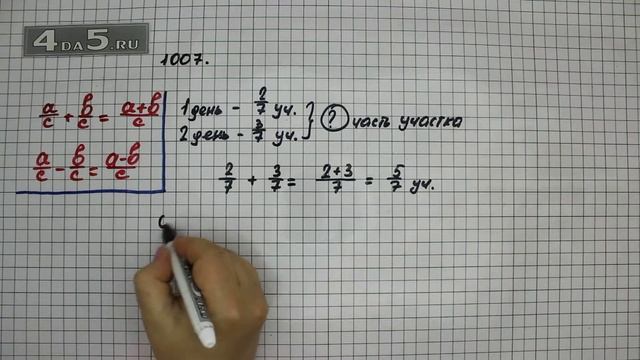 4DA5.RU
1007.
a/c + b/c = a+b/c
a/c - b/c = a-b/c
1 день - 2/7 уч.
2 день - 3/7 уч.
? часть участка
2/7 + 3/7 = 2+3/7 = 5/7 уч.